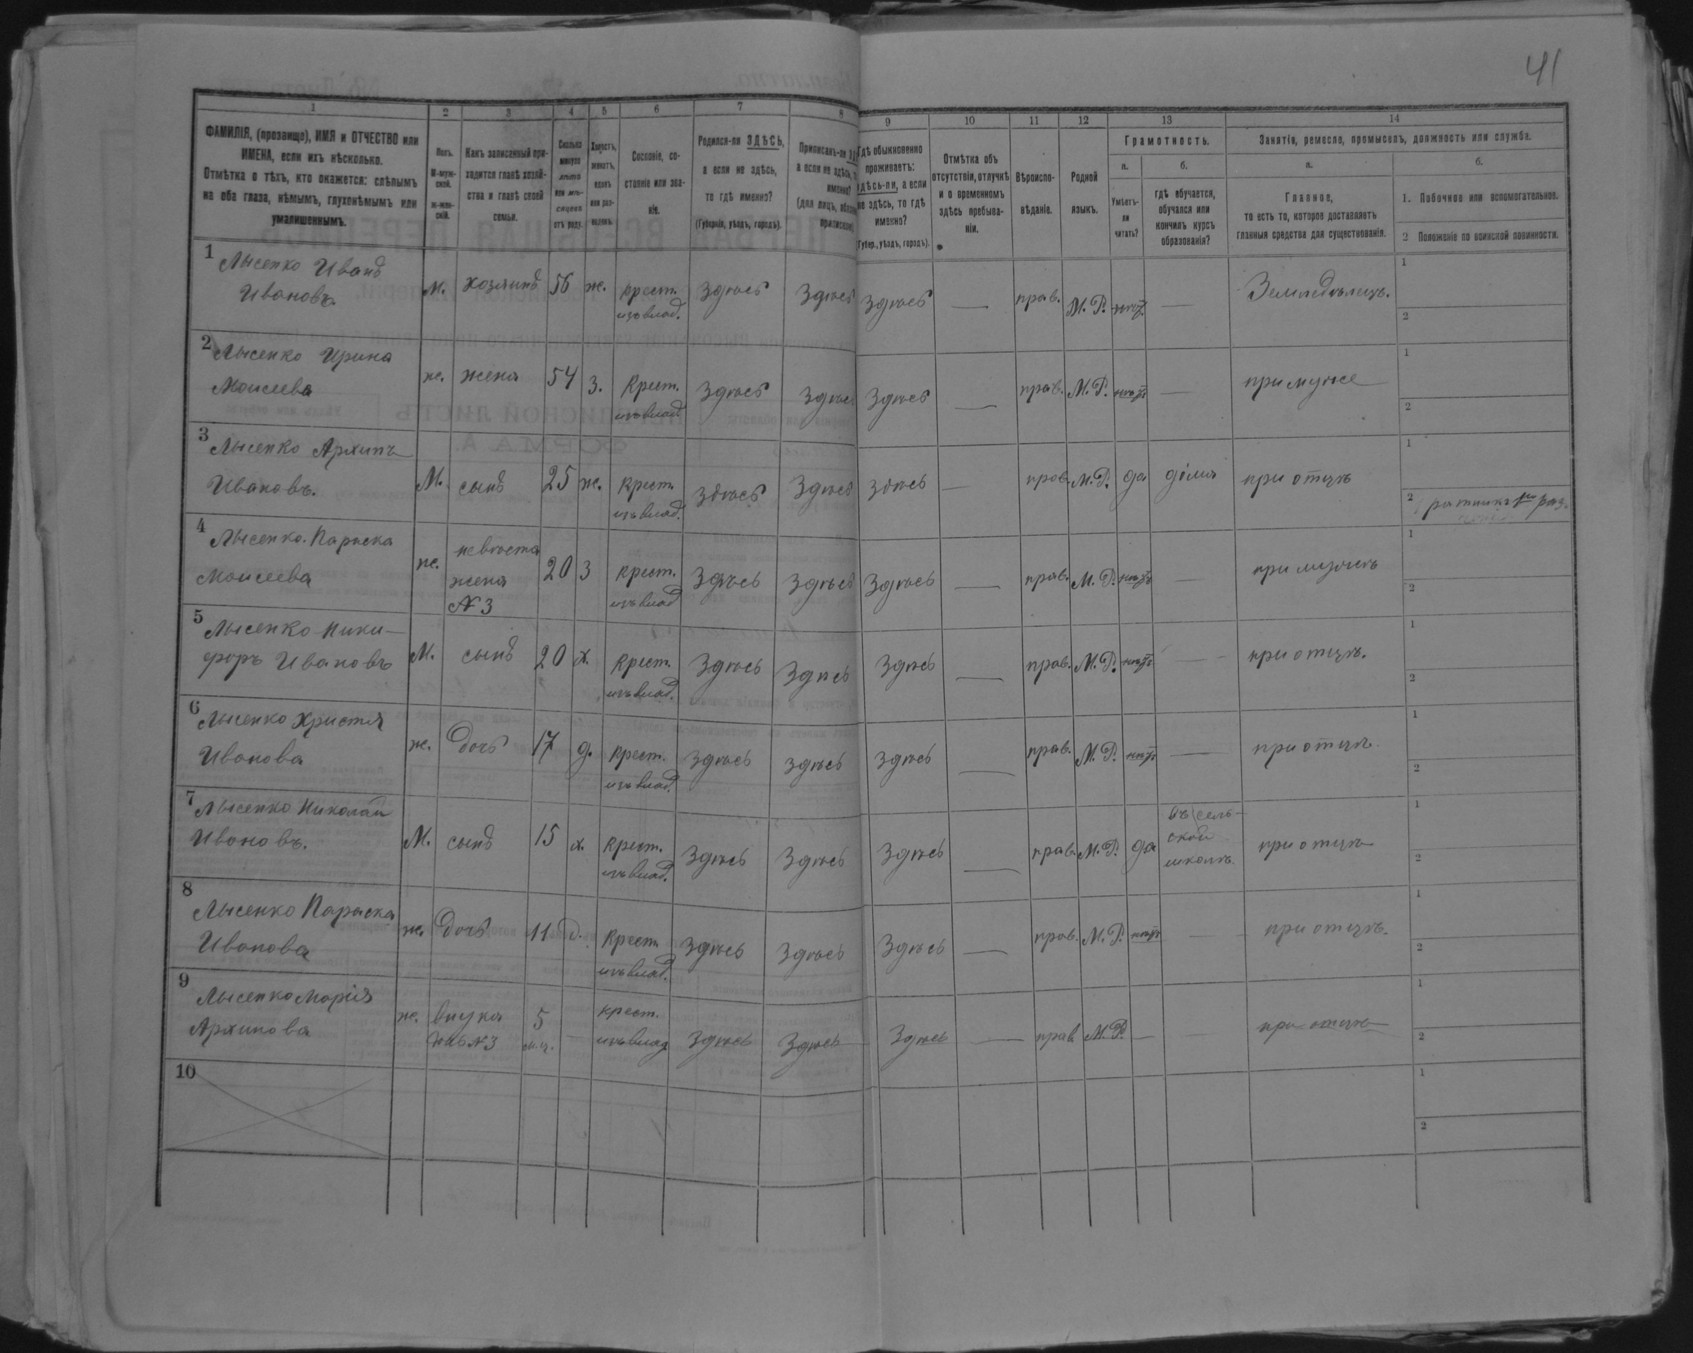 41
1 2 3 4 5 6 7 8 9 10 11 12 13 14
ФАМИЛІЯ, (прозвище), ИМЯ и ОТЧЕСТВО или
ИМЕНА, если ихъ нѣсколько.
Отмѣтка о тѣхъ, кто окажется: слѣпымъ
на оба глаза, нѣмымъ, глухонѣмымъ или
умалишеннымъ.
Полъ.
М-муж-
ской.
Ж-жен-
скій.
Какъ записанный при-
ходится главѣ хозяй-
ства и главѣ своей
семьи.
Сколько
минуло
лѣтъ
или мѣ-
сяцевъ
отъ роду.
Холостъ,
женатъ,
вдовъ
или раз-
веденъ.
Сословіе, со-
стояніе или зва-
ніе.
Родился-ли ЗДѢСЬ,
а если не здѣсь,
то гдѣ именно?
(Губернія, уѣздъ, городъ).
Приписанъ-ли
а если не здѣсь,
именно?
(для лицъ,
Гдѣ обыкновенно
проживаетъ:
здѣсь-ли, а если
не здѣсь, то гдѣ
именно?
(Губер., уѣздъ, городъ).
Отмѣтка объ
отсутствіи, отлучкѣ
и о временномъ
здѣсь пребыва-
ніи.
Вѣроиспо-
вѣданіе.
Родной
языкъ.
Грамотность.
а.
Умѣетъ-
ли
читать?
б.
гдѣ обучается,
обучался или
кончилъ курсъ
образованія?
Занятія, ремесло, промыселъ, должность или служба.
а.
Главное,
то есть то, которое доставляетъ
главныя средства для существованія.
б.
1. Побочное или вспомогательное.
2 Положеніе по воинской повинности.
1 Лысенко Иванъ
Ивановъ
М. хозяинъ 56 ж. крест.
изъ влад.
Здѣсь Здѣсь Здѣсь — прав. М. Р. нѣтъ — Земледѣлецъ. 1
2
2 Лысенко Ирина
Моисеева
ж. жена 54 з. Крест.
изъ влад.
Здѣсь Здѣсь Здѣсь — прав. М. Р. нѣтъ — при мужѣ 1
2
3 Лысенко Архипъ
Ивановъ.
М. сынъ 25 ж. крест.
изъ влад.
Здѣсь Здѣсь Здѣсь — прав. М. Р. да дома при отцѣ 1
2 ратникъ 1го раз.
4 Лысенко Параска
Моисеева
ж. невѣста
жена
№ 3
20 з крест.
изъ влад
Здѣсь Здѣсь Здѣсь — прав. М. Р. нѣтъ — при мужѣ 1
2
5 Лысенко Ники-
форъ Ивановъ
М. сынъ 20 х. крест.
изъ влад.
Здѣсь Здѣсь Здѣсь — прав. М. Р. нѣтъ — при отцѣ. 1
2
6 Лысенко Христя
Иванова
ж. дочь 17 д. крест.
изъ влад.
Здѣсь Здѣсь Здѣсь — прав. М. Р. нѣтъ — при отцѣ. 1
2
7 Лысенко Николай
Ивановъ.
М. сынъ 15 х. крест.
изъ влад.
Здѣсь Здѣсь Здѣсь — прав. М. Р. да въ сель-
ской
школѣ
при отцѣ 1
2
8 Лысенко Параска
Иванова
ж. дочь 11 д. Крест.
изъ влад.
Здѣсь Здѣсь Здѣсь — прав. М. Р. нѣтъ — при отцѣ. 1
2
9 Лысенко Марія
Архипова
ж. внука
№ 3
5
м.
— крест.
изъ влад
Здѣсь Здѣсь Здѣсь — прав. М. Р. — — при отцѣ 1
2
10
1
2